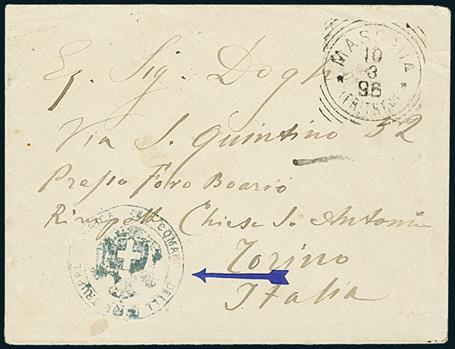 MASSAUA
10
3
96
(ERITREA)
Eg. Sig. Dogh
Via S. Quintino 32
Presso Foro Boario
Chiesa S. Antonio
Torino
Italia
COMANDO DELLE TRUPPE